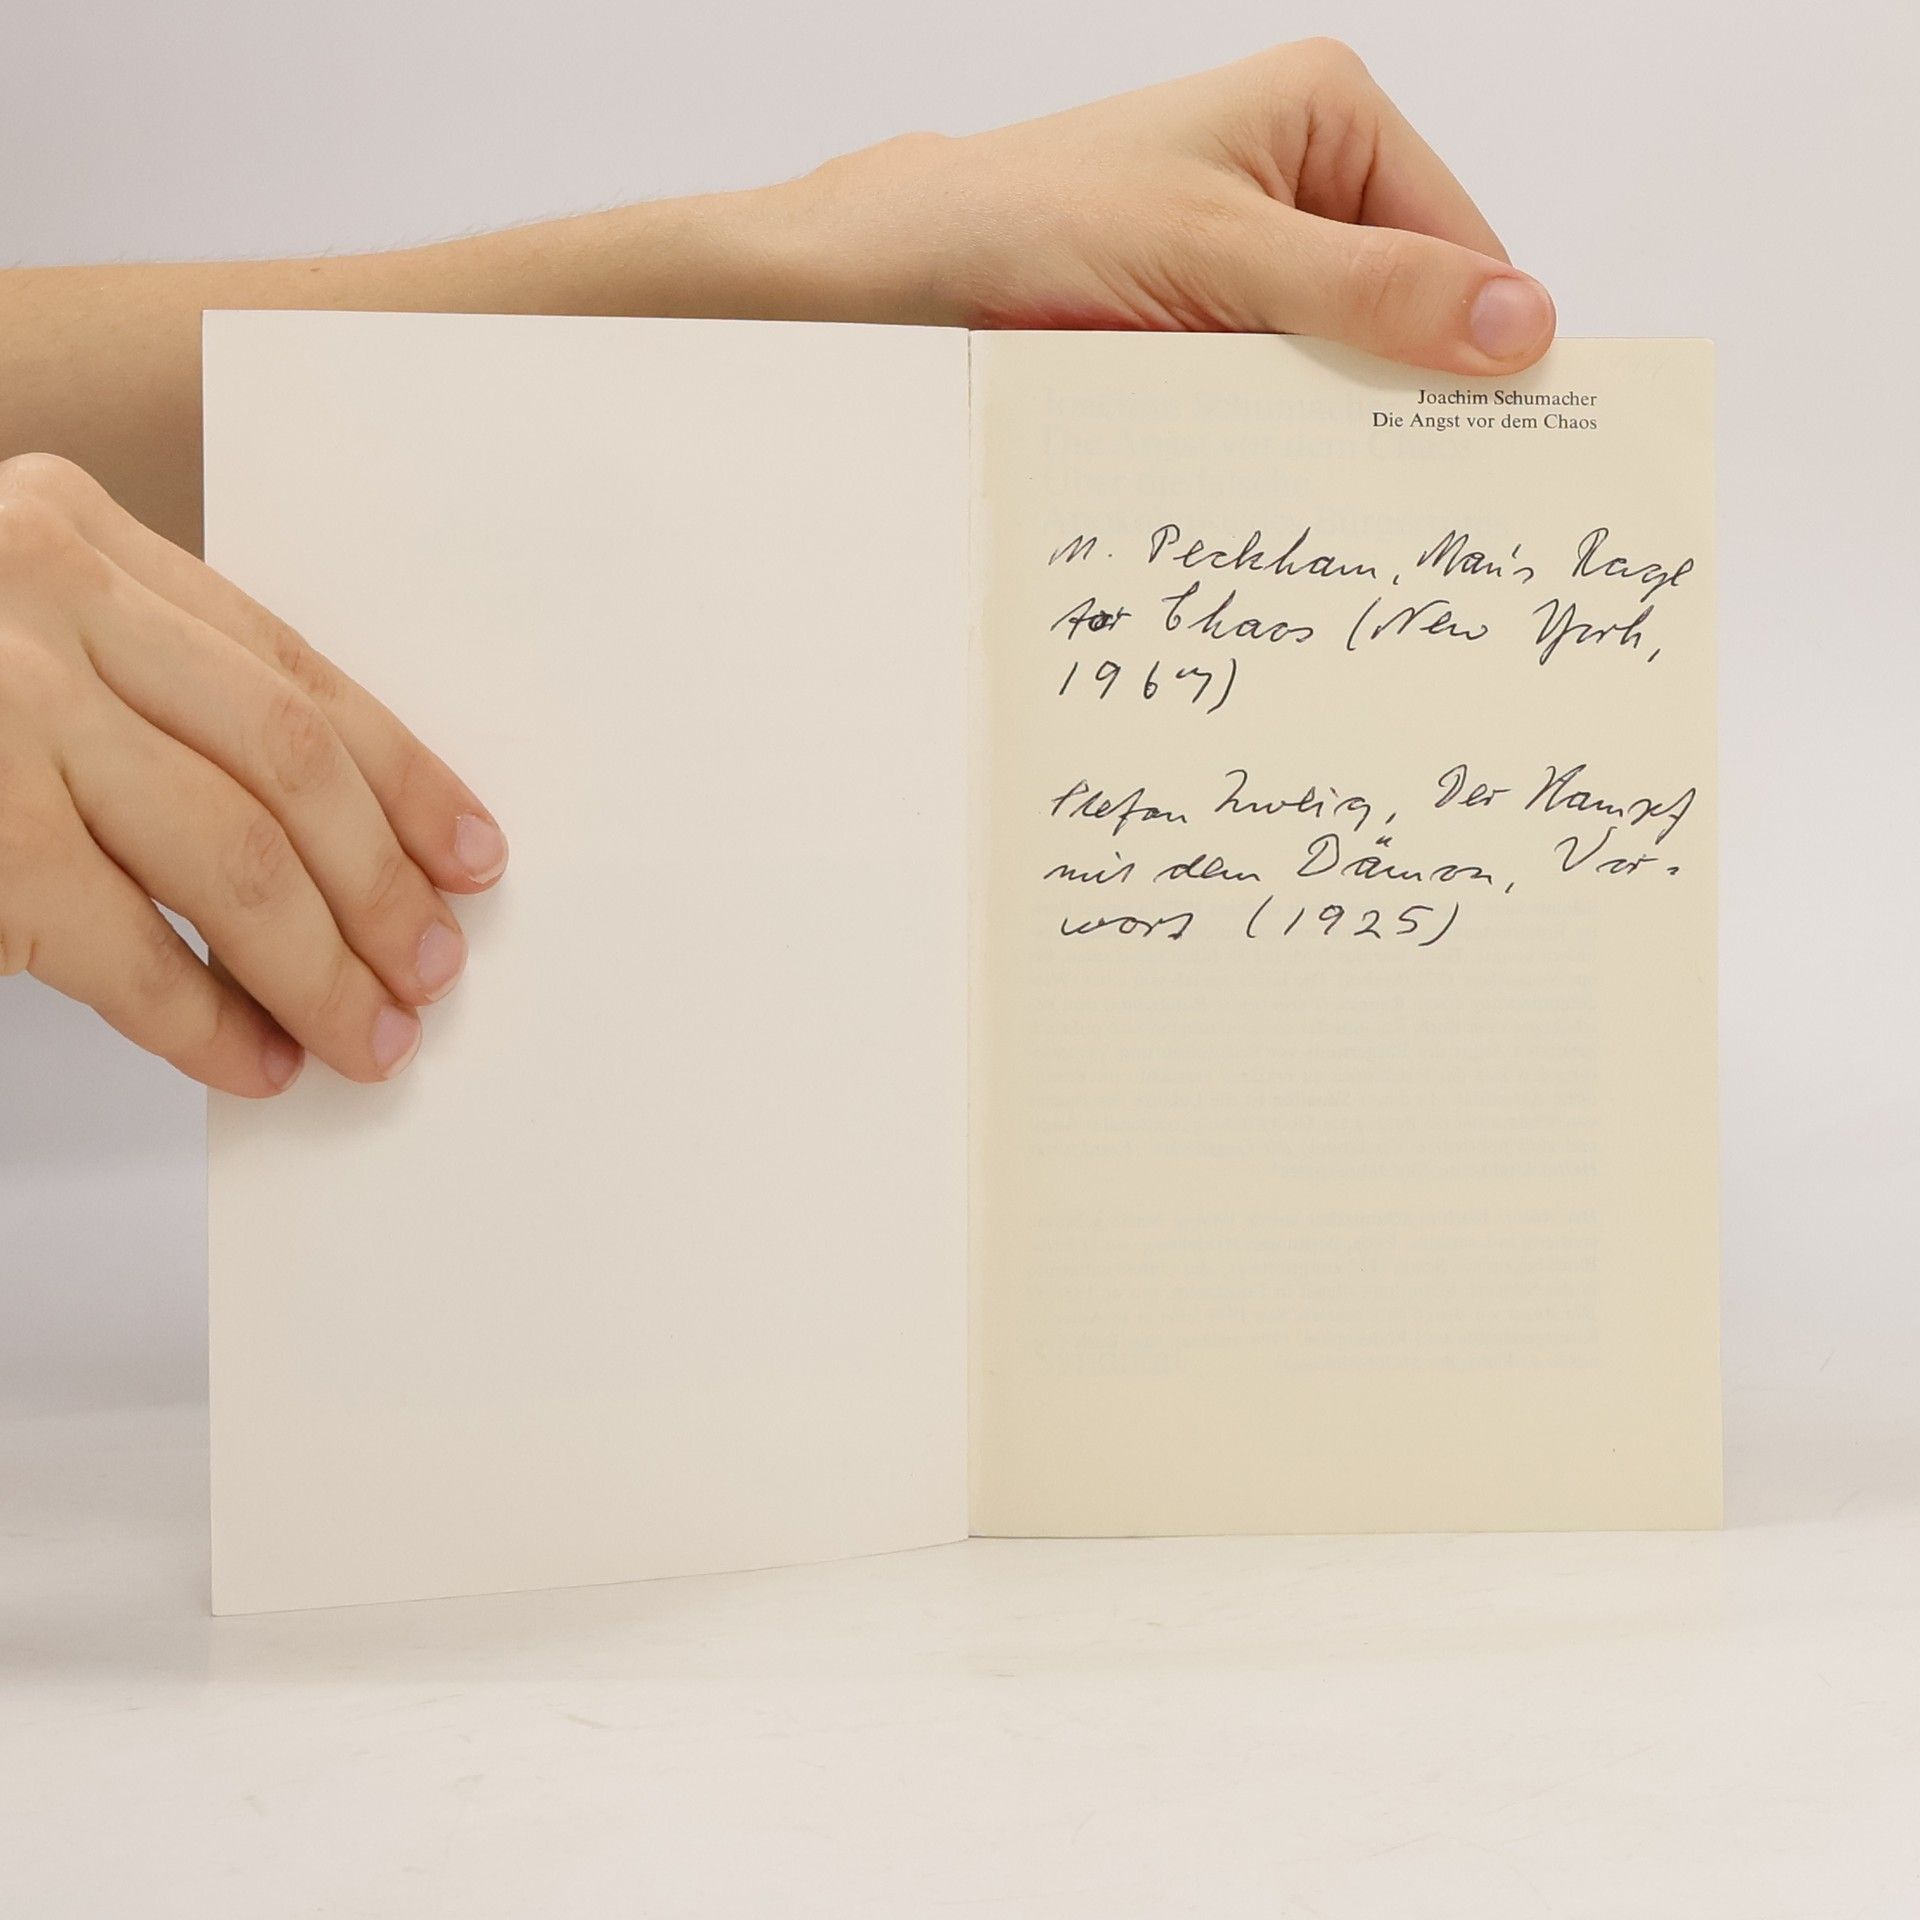 Joachim Schumacher
Die Angst vor dem Chaos
M. Peckham, Man's Rage
for Chaos (New York,
1967)
Stefan Zweig, Der Kampf
mit dem Dämon, Vor-
wort (1925)